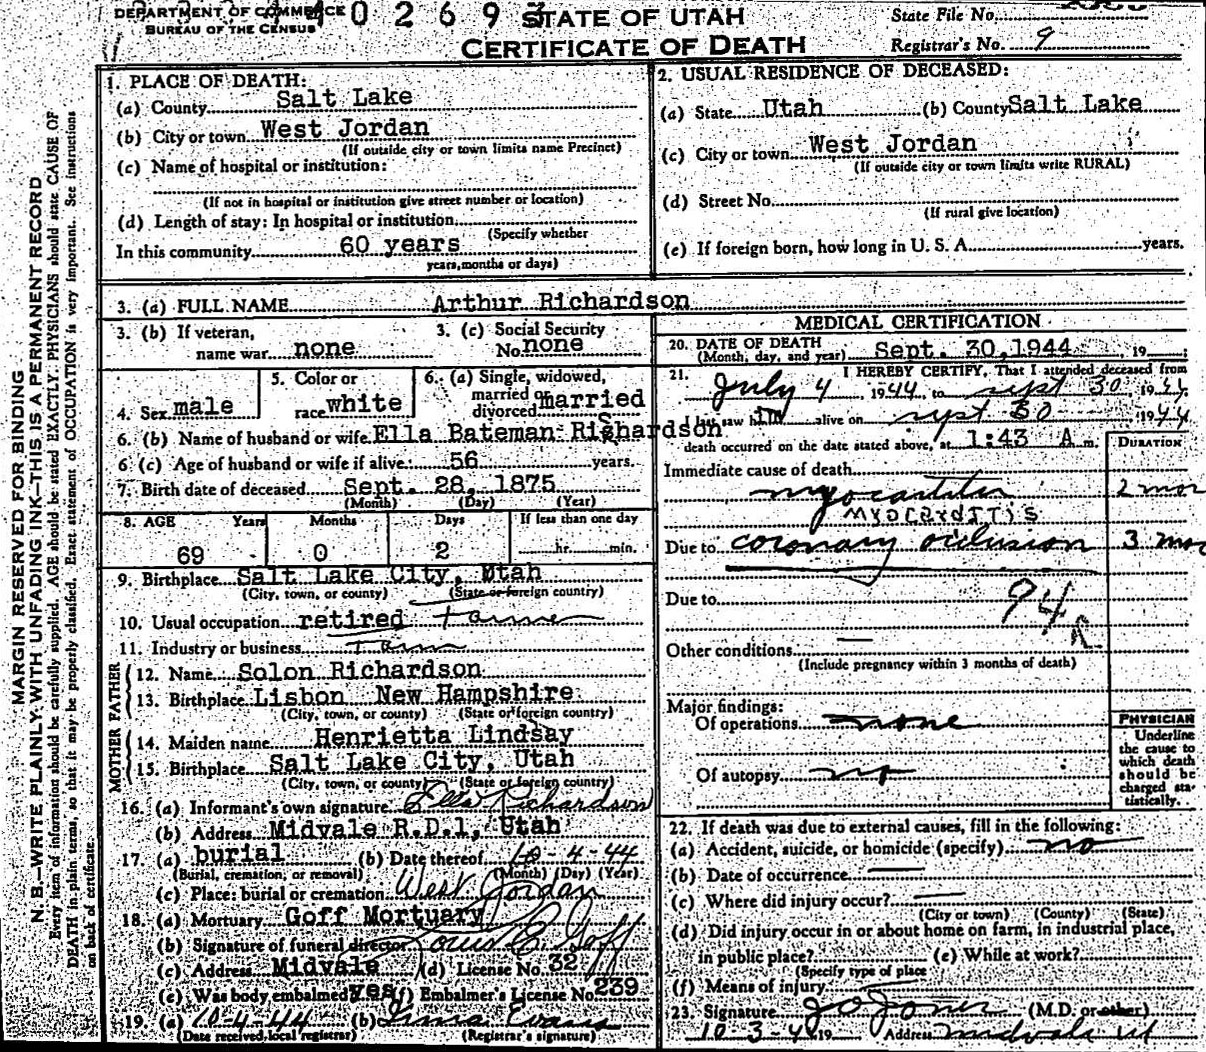 DEPARTMENT OF COMMERCE
BUREAU OF THE CENSUS
0 2 6 9 3
STATE OF UTAH
CERTIFICATE OF DEATH
State File No.
Registrar's No. 9
MARGIN RESERVED FOR BINDING
N. B.—WRITE PLAINLY, WITH UNFADING INK—THIS IS A PERMANENT RECORD
Every item of information should be carefully supplied. AGE should be stated EXACTLY. PHYSICIANS should state CAUSE OF
DEATH in plain terms, so that it may be properly classified. Exact statement of OCCUPATION is very important. See instructions
on back of certificate.
1. PLACE OF DEATH:
(a) County Salt Lake
(b) City or town West Jordan
(If outside city or town limits name Precinct)
(c) Name of hospital or institution:
(If not in hospital or institution give street number or location)
(d) Length of stay: In hospital or institution
(Specify whether
In this community 60 years
years, months or days)
2. USUAL RESIDENCE OF DECEASED:
(a) State Utah (b) County Salt Lake
(c) City or town West Jordan
(If outside city or town limits write RURAL)
(d) Street No.
(If rural give location)
(e) If foreign born, how long in U. S. A. years.
3. (a) FULL NAME Arthur Richardson
3. (b) If veteran,
name war none
3. (c) Social Security
No. none
4. Sex male
5. Color or
race white
6. (a) Single, widowed,
married or
divorced married
6. (b) Name of husband or wife Ella Bateman Richardson
6 (c) Age of husband or wife if alive: 56 years.
7. Birth date of deceased Sept. 28, 1875
(Month) (Day) (Year)
8. AGE Years Months Days If less than one day
69 0 2 hr. min.
9. Birthplace Salt Lake City, Utah
(City, town, or county) (State or foreign country)
10. Usual occupation retired Farmer
11. Industry or business Farm
FATHER
12. Name Solon Richardson
13. Birthplace Lisbon New Hampshire
(City, town, or county) (State or foreign country)
MOTHER
14. Maiden name Henrietta Lindsay
15. Birthplace Salt Lake City, Utah
(City, town, or county) (State or foreign country)
16. (a) Informant's own signature Ella Richardson
(b) Address Midvale R.D.1, Utah
17. (a) burial (b) Date thereof 10-4-44
(Burial, cremation, or removal) (Month) (Day) (Year)
(c) Place: burial or cremation West Jordan
18. (a) Mortuary Goff Mortuary
(b) Signature of funeral director Louis E Goff
(c) Address Midvale (d) License No. 32
(e) Was body embalmed? yes (f) Embalmer's License No. 239
19. (a) 10-4-44 (b) Evans
(Date received local registrar) (Registrar's signature)
MEDICAL CERTIFICATION
20. DATE OF DEATH
(Month, day, and year) Sept. 30, 1944, 19
21. I HEREBY CERTIFY, That I attended deceased from
July 4, 1944, to Sept 30, 1944.
I last saw him alive on Sept 30 1944
death occurred on the date stated above, at 1:43 A m.
DURATION
Immediate cause of death
myocarditis 2 mon
MYOCARDITIS
Due to coronary occlusion 3 mos
Due to
94
Other conditions —
(Include pregnancy within 3 months of death)
Major findings:
Of operations none
Of autopsy no
PHYSICIAN
Underline
the cause to
which death
should be
charged sta-
tistically.
22. If death was due to external causes, fill in the following:
(a) Accident, suicide, or homicide (specify) no
(b) Date of occurrence —
(c) Where did injury occur? —
(City or town) (County) (State)
(d) Did injury occur in or about home on farm, in industrial place,
in public place? (e) While at work?
(Specify type of place
(f) Means of injury
23. Signature J O Jones (M.D. or other)
10-3-44 19 Address Midvale Ut